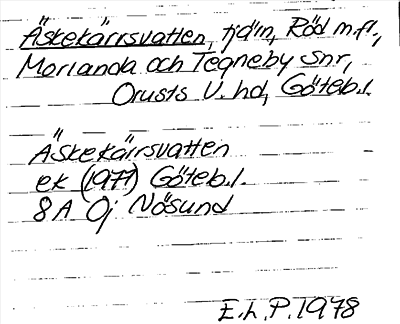 Äskekärrsvatten, tjärn, Röd m.fl.,
Morlanda och Tegneby snr,
Orusts V. hd, Göteb.l.
Äskekärrsvatten
ek (1977) Göteb.l.
8A Oj Nösund
E.h.P. 1978